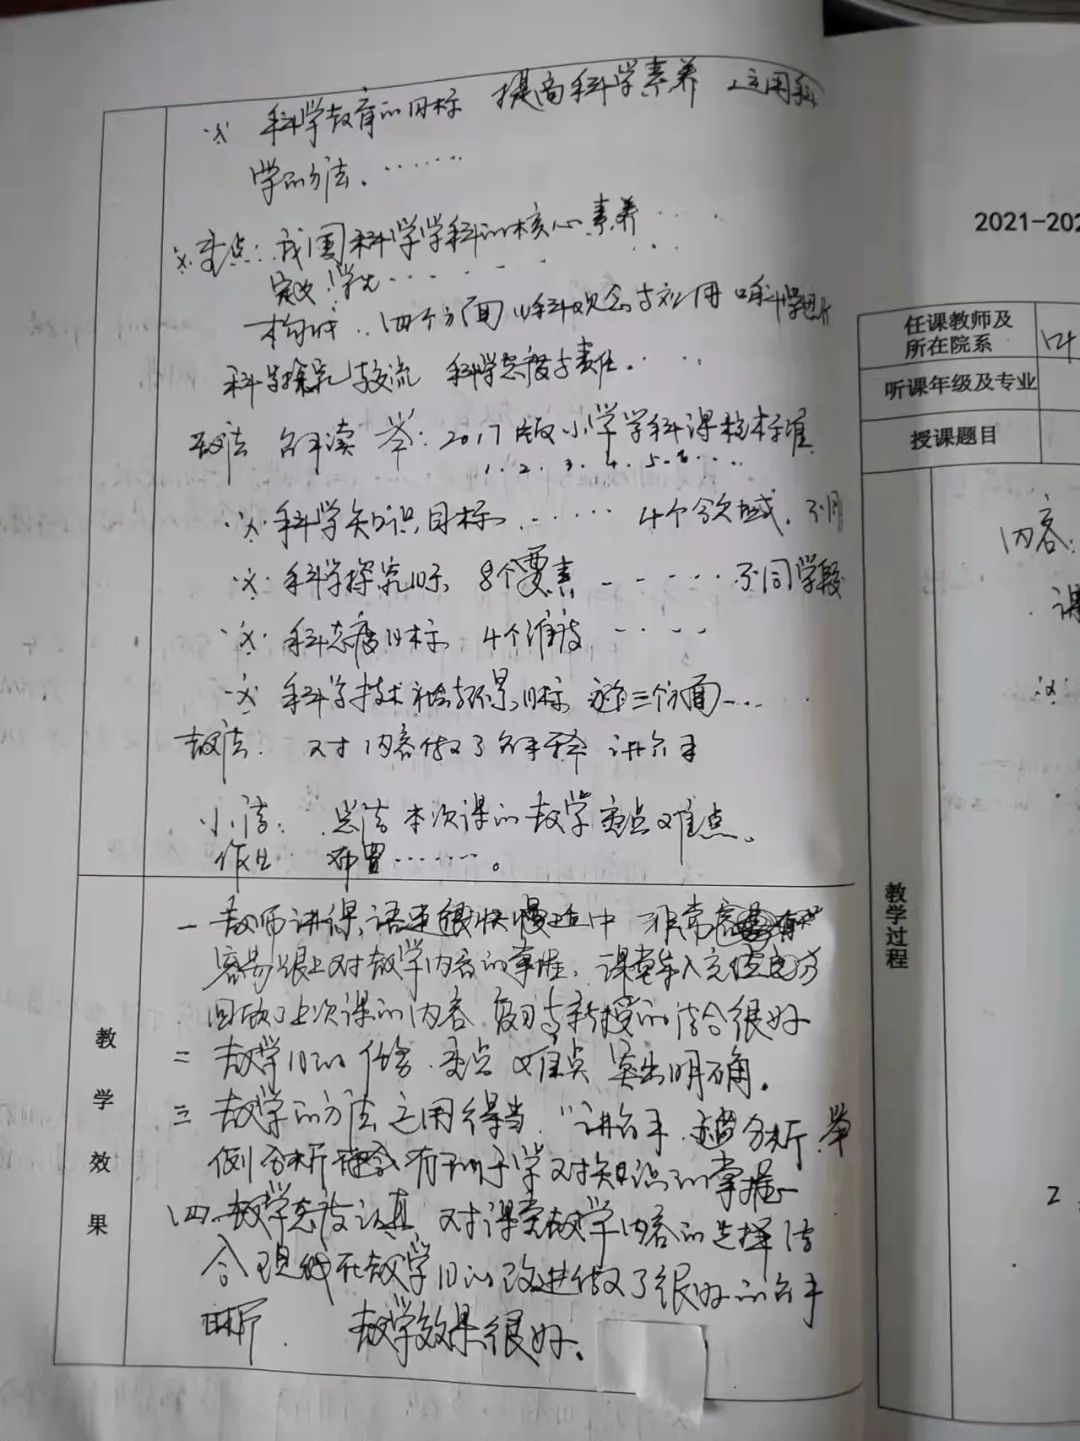 ※ 科学教育的目标 提高科学素养 运用科
学的方法、……
※重点：我国科学学科的核心素养……
定义！……
构成：四个方面 (1)科观念与应用 (2)科学思
科学探究与交流 科学态度与责任……
教法 解读 举：2017版小学学科课程标准
1. 2. 3. 4. 5. 6.……
※ 科学知识目标…… 4个领域.
※ 科学探究目标 8个要素…… 不同学段
※ 科态度目标 4个维度……
※ 科学技术社会与环境目标 三个方面……
教法. 对内容做了解释 讲解
小结： 总结本次课的教学重点难点。
作业 布置……。
教学效果
一 教师讲课、语速快慢适中 非常
容易跟上对教学内容的掌握、课堂导入
回放了上次课的内容 复习与新授的结合很好
二 教学目的 重点 难点 突出明确。
三 教学的方法运用得当. "讲解 分析 举
例分析 有利于学对知识的掌握
四. 教学态度认真 对课堂教学内容的选择结
合现 在教学目的改进做了很好的解
教学效果很好。
2021-202
任课教师及
所在院系
听课年级及专业
授课题目
教学过程
内容：
课
※
2